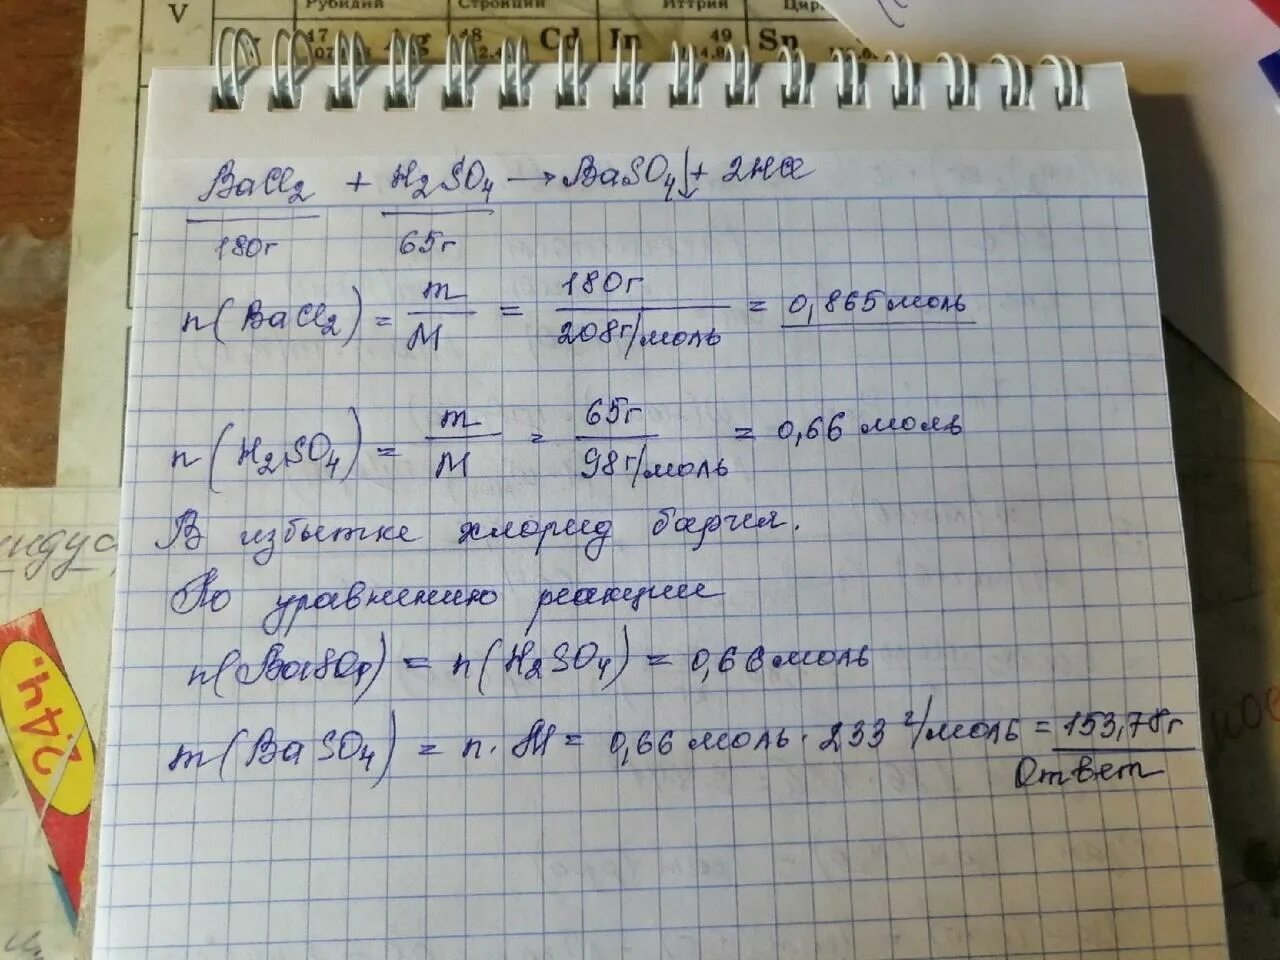 V
Рубидий
Стронций
Иттрий
Cd
In
49
Sn
BaCl2 + H2SO4 → BaSO4↓ + 2HCl
180г 65г
n(BaCl2) = m/M = 180г/208г/моль = 0,865 моль
n(H2SO4) = m/M = 65г/98г/моль = 0,66 моль
В избытке хлорид бария.
По уравнению реакции
n(BaSO4) = n(H2SO4) = 0,66 моль
m(BaSO4) = n · M = 0,66 моль · 233 г/моль = 153,78г
Ответ
2.44.